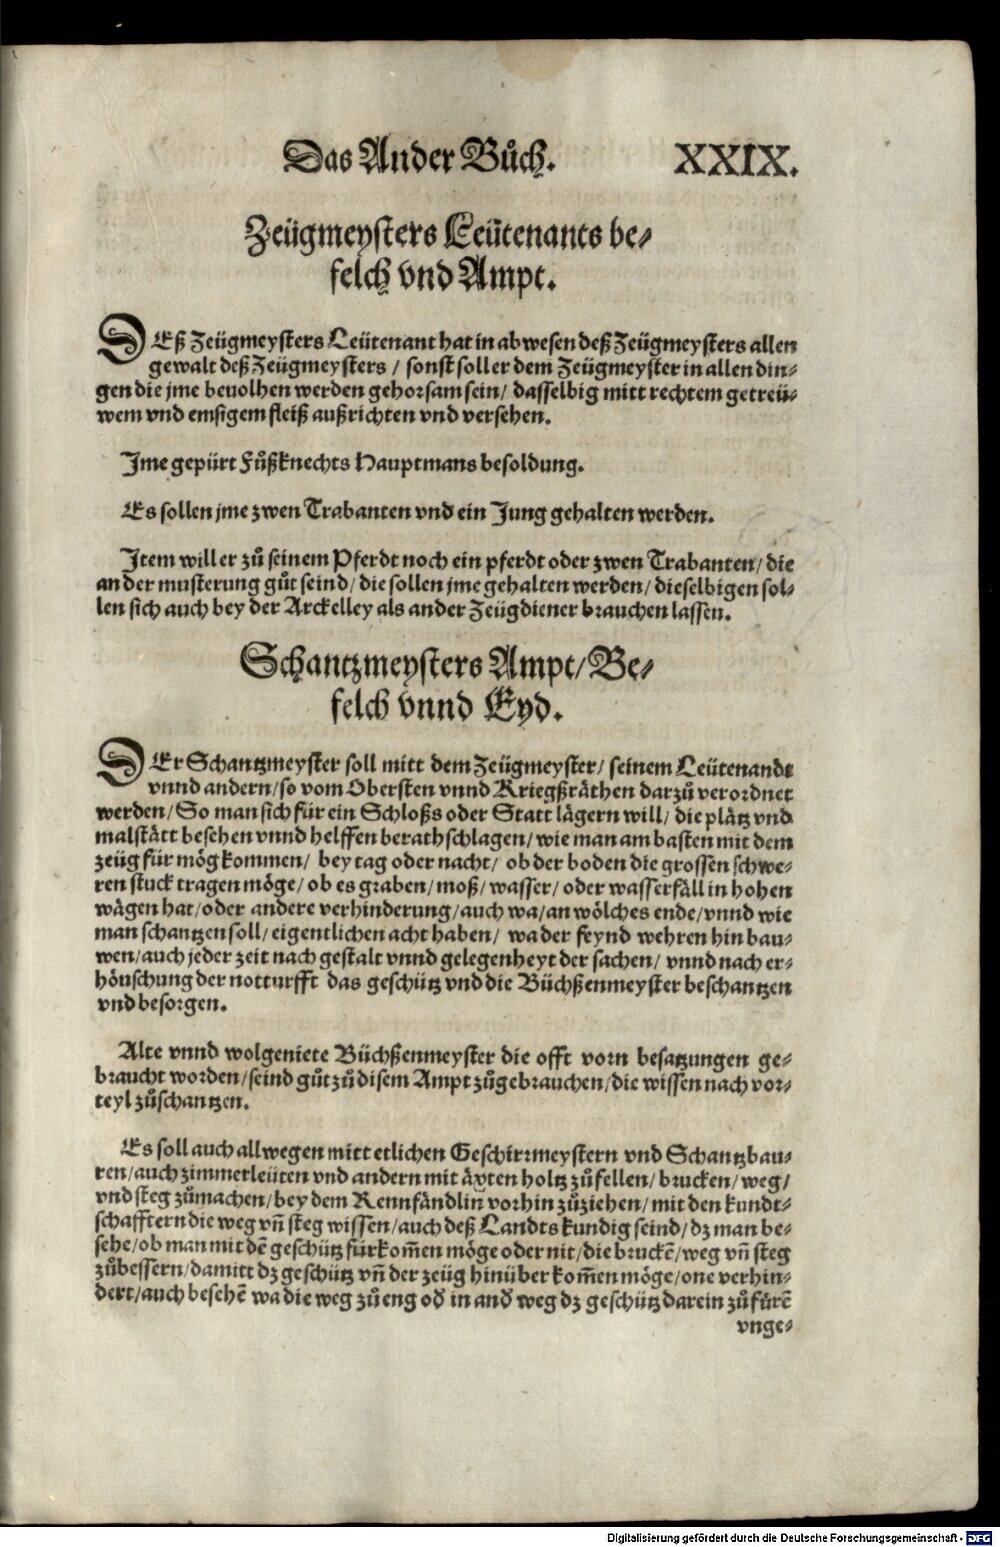 Das Ander Bůch. XXIX.
Zeügmeysters Leütenants be⸗
felch vnd Ampt.
DEß Zeügmeysters Leütenant hat in abwesen deß Zeügmeysters allen
gewalt deß Zeügmeysters / sonst soll er dem Zeügmeyster in allen din⸗
gen die jme beuolhen werden gehorsam sein / dasselbig mitt rechtem getreü⸗
wem vnd emsigem fleiß außrichten vnd versehen.
Jme gepürt Fůßknechts Hauptmans besoldung.
Es sollen jme zwen Trabanten vnd ein Jung gehalten werden.
Jtem will er zů seinem Pferdt noch ein pferdt oder zwen Trabanten / die
an der musterung gůt seind / die sollen jme gehalten werden / dieselbigen sol⸗
len sich auch bey der Arckelley als ander Zeügdiener brauchen lassen.
Schantzmeysters Ampt / Be⸗
felch vnnd Eyd.
DEr Schantzmeyster soll mitt dem Zeügmeyster / seinem Leütenandt
vnnd andern / so vom Obersten vnnd Kriegßräthen darzů verordnet
werden / So man sich für ein Schloßs oder Statt lägern will / die plätz vnd
malstätt besehen vnnd helffen berathschlagen / wie man am basten mit dem
zeüg für mög kommen / bey tag oder nacht / ob der boden die grossen schwe⸗
ren stuck tragen möge / ob es graben / moß / wasser / oder wasserfäll in hohen
wägen hat / oder andere verhinderung / auch wa / an wölches ende / vnnd wie
man schantzen soll / eigentlichen acht haben / wa der feynd wehren hin bau⸗
wen / auch jeder zeit nach gestalt vnnd gelegenheyt der sachen / vnnd nach er⸗
höuschung der notturfft das geschütz vnd die Büchßenmeyster beschantzen
vnd besorgen.
Alte vnnd wolgeniete Büchßenmeyster die offt vorn besatzungen ge⸗
braucht worden / seind gůt zů disem Ampt zůgebrauchen / die wissen nach vor⸗
teyl zůschantzen.
Es soll auch allwegen mitt etlichen Geschirrmeystern vnd Schantzbau⸗
ren / auch zimmerleüten vnd andern mit äxten holtz zůfellen / brucken / weg /
vnd steg zůmachen / bey dem Rennfändlin vorhin zůziehen / mit den kundt⸗
schafftern die weg vñ steg wissen / auch deß Landts kundig seind / dz man be⸗
sehe / ob man mit dē geschütz fürkom̃en möge oder nit / die bruckē / weg vñ steg
zůbessern / damitt dz geschütz vñ der zeüg hinüber kom̃en möge / one verhin⸗
dert / auch besehē wa die weg zů eng oď in anď weg dz geschütz darein zůfürē
vnge⸗
Digitalisierung gefördert durch die Deutsche Forschungsgemeinschaft - DFG